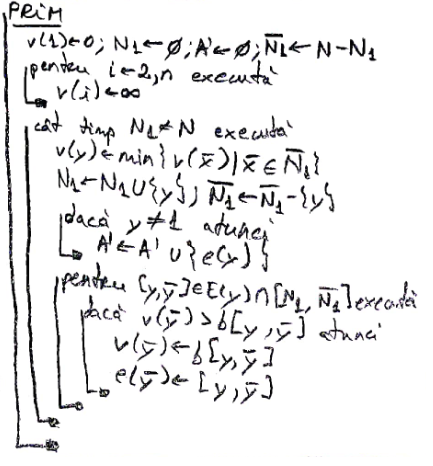 PRIM
v(1)←0; N₁←∅; A'←∅; N̅₁←N-N₁
pentru i←2,n execută
v(i)←∞
cât timp N₁≠N execută
v(y)←min{v(x̅)|x̅∈N̅₁}
N₁←N₁∪{y}; N̅₁←N̅₁-{y}
dacă y≠1 atunci
A'←A'∪{e(y)}
pentru [y,y̅]∈E(y)∩[N₁,N̅₁] execută
dacă v(y̅)>b[y,y̅] atunci
v(y̅)←b[y,y̅]
e(y̅)←[y,y̅]